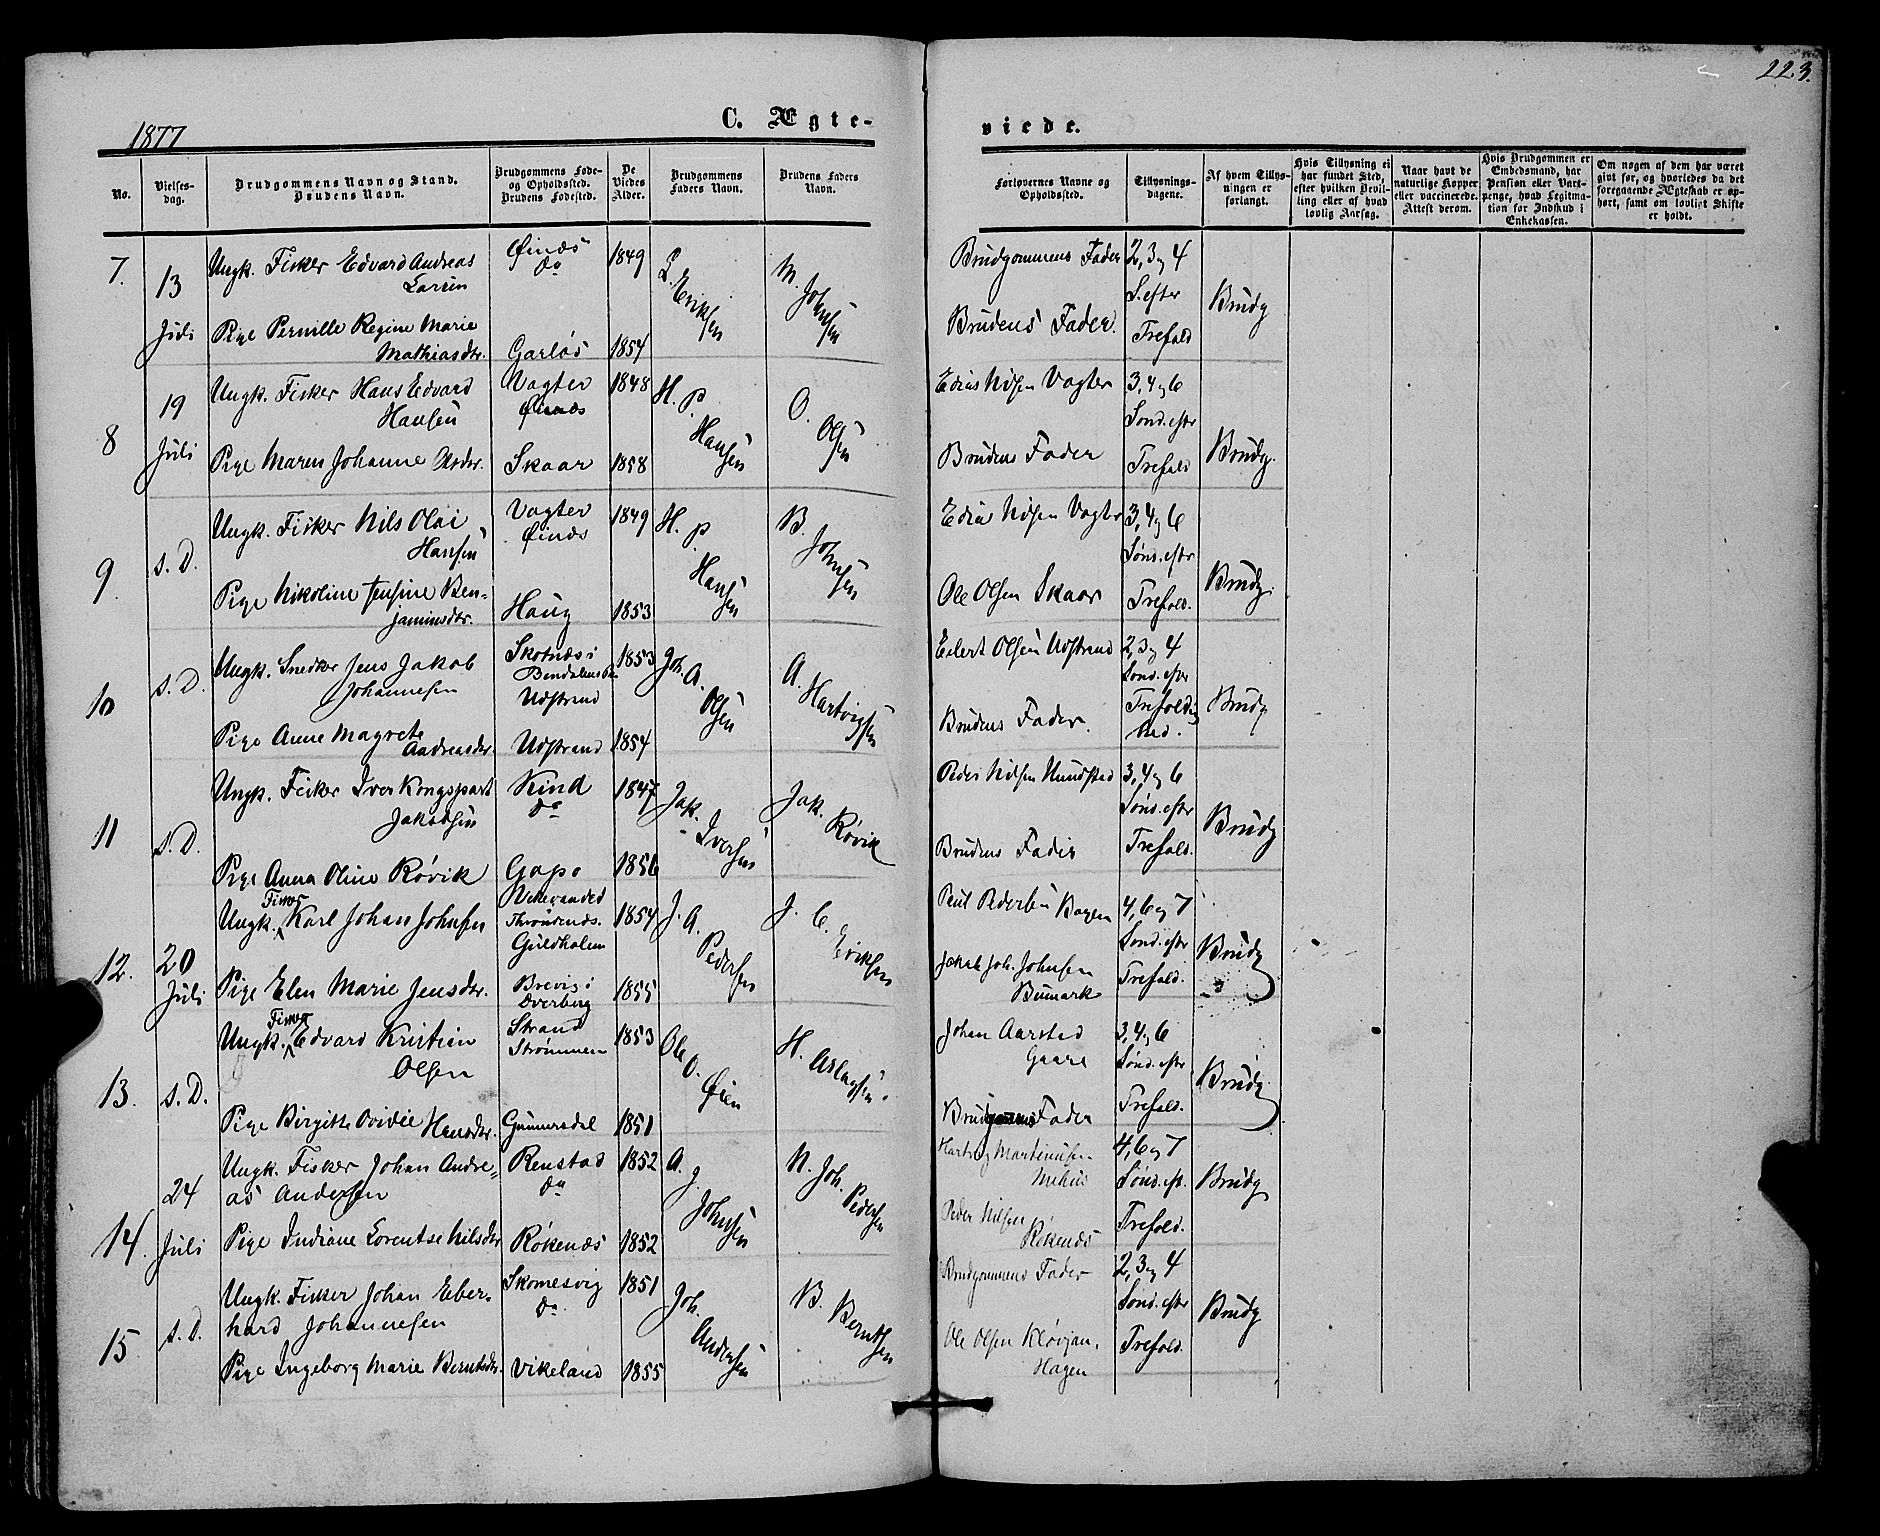 223.
1877
C. Ægte-
viede.
No.
Vielses-
dag.
Brudgommens Navn og Stand.
Brudens Navn.
Brudgommens Føde-
og Opholdssted.
Brudens Fødested.
De
Viedes
Alder.
Brudgommens
Faders Navn.
Brudens Faders
Navn.
Forlovernes Navne og
Opholdssted.
Tillysnings-
dagene.
Af hvem Tillys-
ningen er
forlangt.
Hvis Tillysning ei
har fundet Sted,
efter hvilken Bevil-
ling eller af hvad
lovlig Aarsag.
Naar havt de
naturlige Kopper
eller vaccinerede.
Attest derom.
Hvis Brudgommen er
Embedsmand, har
Pension eller Vart-
penge, hvad Legitima-
tion for Indskud i
Enkekassen.
Om nogen af dem har været
givt før, og hvorledes da det
foregaaende Ægteskab er op-
hørt, samt om lovligt Skifte
er holdt.
7.
13
Juli
Ungk. Fisker Edvard Andreas
Larsen
Øinæs
do
1849
L. Eriksen
M. Johnsen
Brudgommens Fader
2, 3 og 4
S. efter
Trefold
Brudg
Pige Pernille Regine Marie
Mathiasdtr.
Garløs
1854
Brudens Fader.
8
19
Juli
Ungk. Fisker Hans Edvard
Hansen
Vagter
Øinæs
1848
H. P. Hansen
O. Olsen
Edias Nilsen Vagter
3, 4 og 6
Sond. eftr
Trefold
Brudg.
Pige Maren Johanne Olsdtr.
Skaar
1858
Brudens Fader
9.
s. D.
Ungk. Fisker Nils Olai
Hansen
Vagter
Øinæs
1849
H. P. Hansen
B. Johnsen
Edias Nilsen Vagter
3, 4 og 6
Sønd. eftr
Trefold.
Brudg.
Pige Nikoline Jensine Ben-
jaminsdtr.
Haug
1853
Ole Olsen Skaar
10
s. D.
Ungk. Snedker Jens Jakob
Johannesen
Skotnæs i
Udstrand
1853
Joh. A. Olsen
A. Hartvigsen
Eilert Olsen Udstrand
2, 3 og 4
Sond. efter
Brudg
Pige Anne Magrete
Andreasdtr.
Udstrand
1854
Brudens Fader.
11
s. D.
Ungk. Fisker Iver Kongspart
Jakobsen
Kind
do
1847
Jak. Iversen
Jak. Røvik
Peder Nilsen Hundstad
3, 4 og 6
Sønd. eftr
Trefold.
Brudg
Pige Anna Oline Røvik
Gapø
1856
Brudens Fader
12.
20
Juli
Ungk. Fisker Karl Johan Johnsen
Throndenæs.
Guldholm
1854
J. A. Pedersen
J. C. Eriksen
Paul Pedersen Bogen
4, 6 og 7
Sond. eftr
Trefold.
Brudg
Pige Elen Marie Jensdtr.
Brevig i
Dverberg
1855
Jakob Joh. Johnsen
Bumark
13.
s. D.
Ungk. Fisker Edvard Kristian
Olsen
Strand
Strømmen
1853
Ole O. Øien
H. Aslagsen
Johan Aarstad
Gaare
3, 4 og 6
Sønd. eftr
Trefold.
Brudg.
Pige Birgitte Ovidie Hansdtr.
Gunnarsdal
1851
Brudgommens Fader
14.
24
Juli
Ungk. Fisker Johan Andre-
as Andersen
Renstad
do
1852
A. J. Johnsen
N. Joh. Pedersen
Hartvig Martinusen
Melius
4, 6 og 7
Sønd. ef.
Trefold.
Brudg
Pige Indiane Lorentse Nilsdtr
Røkenæs
1852
Peder Nilsen
Røkenæs
15
s. D.
Ungk. Fisker Johan Eber-
hard Johannesen
Skomesvig
do.
1851
Joh. Andersen
B. Berntsen
Brudgommens Fader
2, 3 og 4
Sond. eftr
Trefold.
Brudg
Pige Ingeborg Marie Berntsdtr.
Vikeland
1855
Ole Olsen Kløvjan,
Hagen